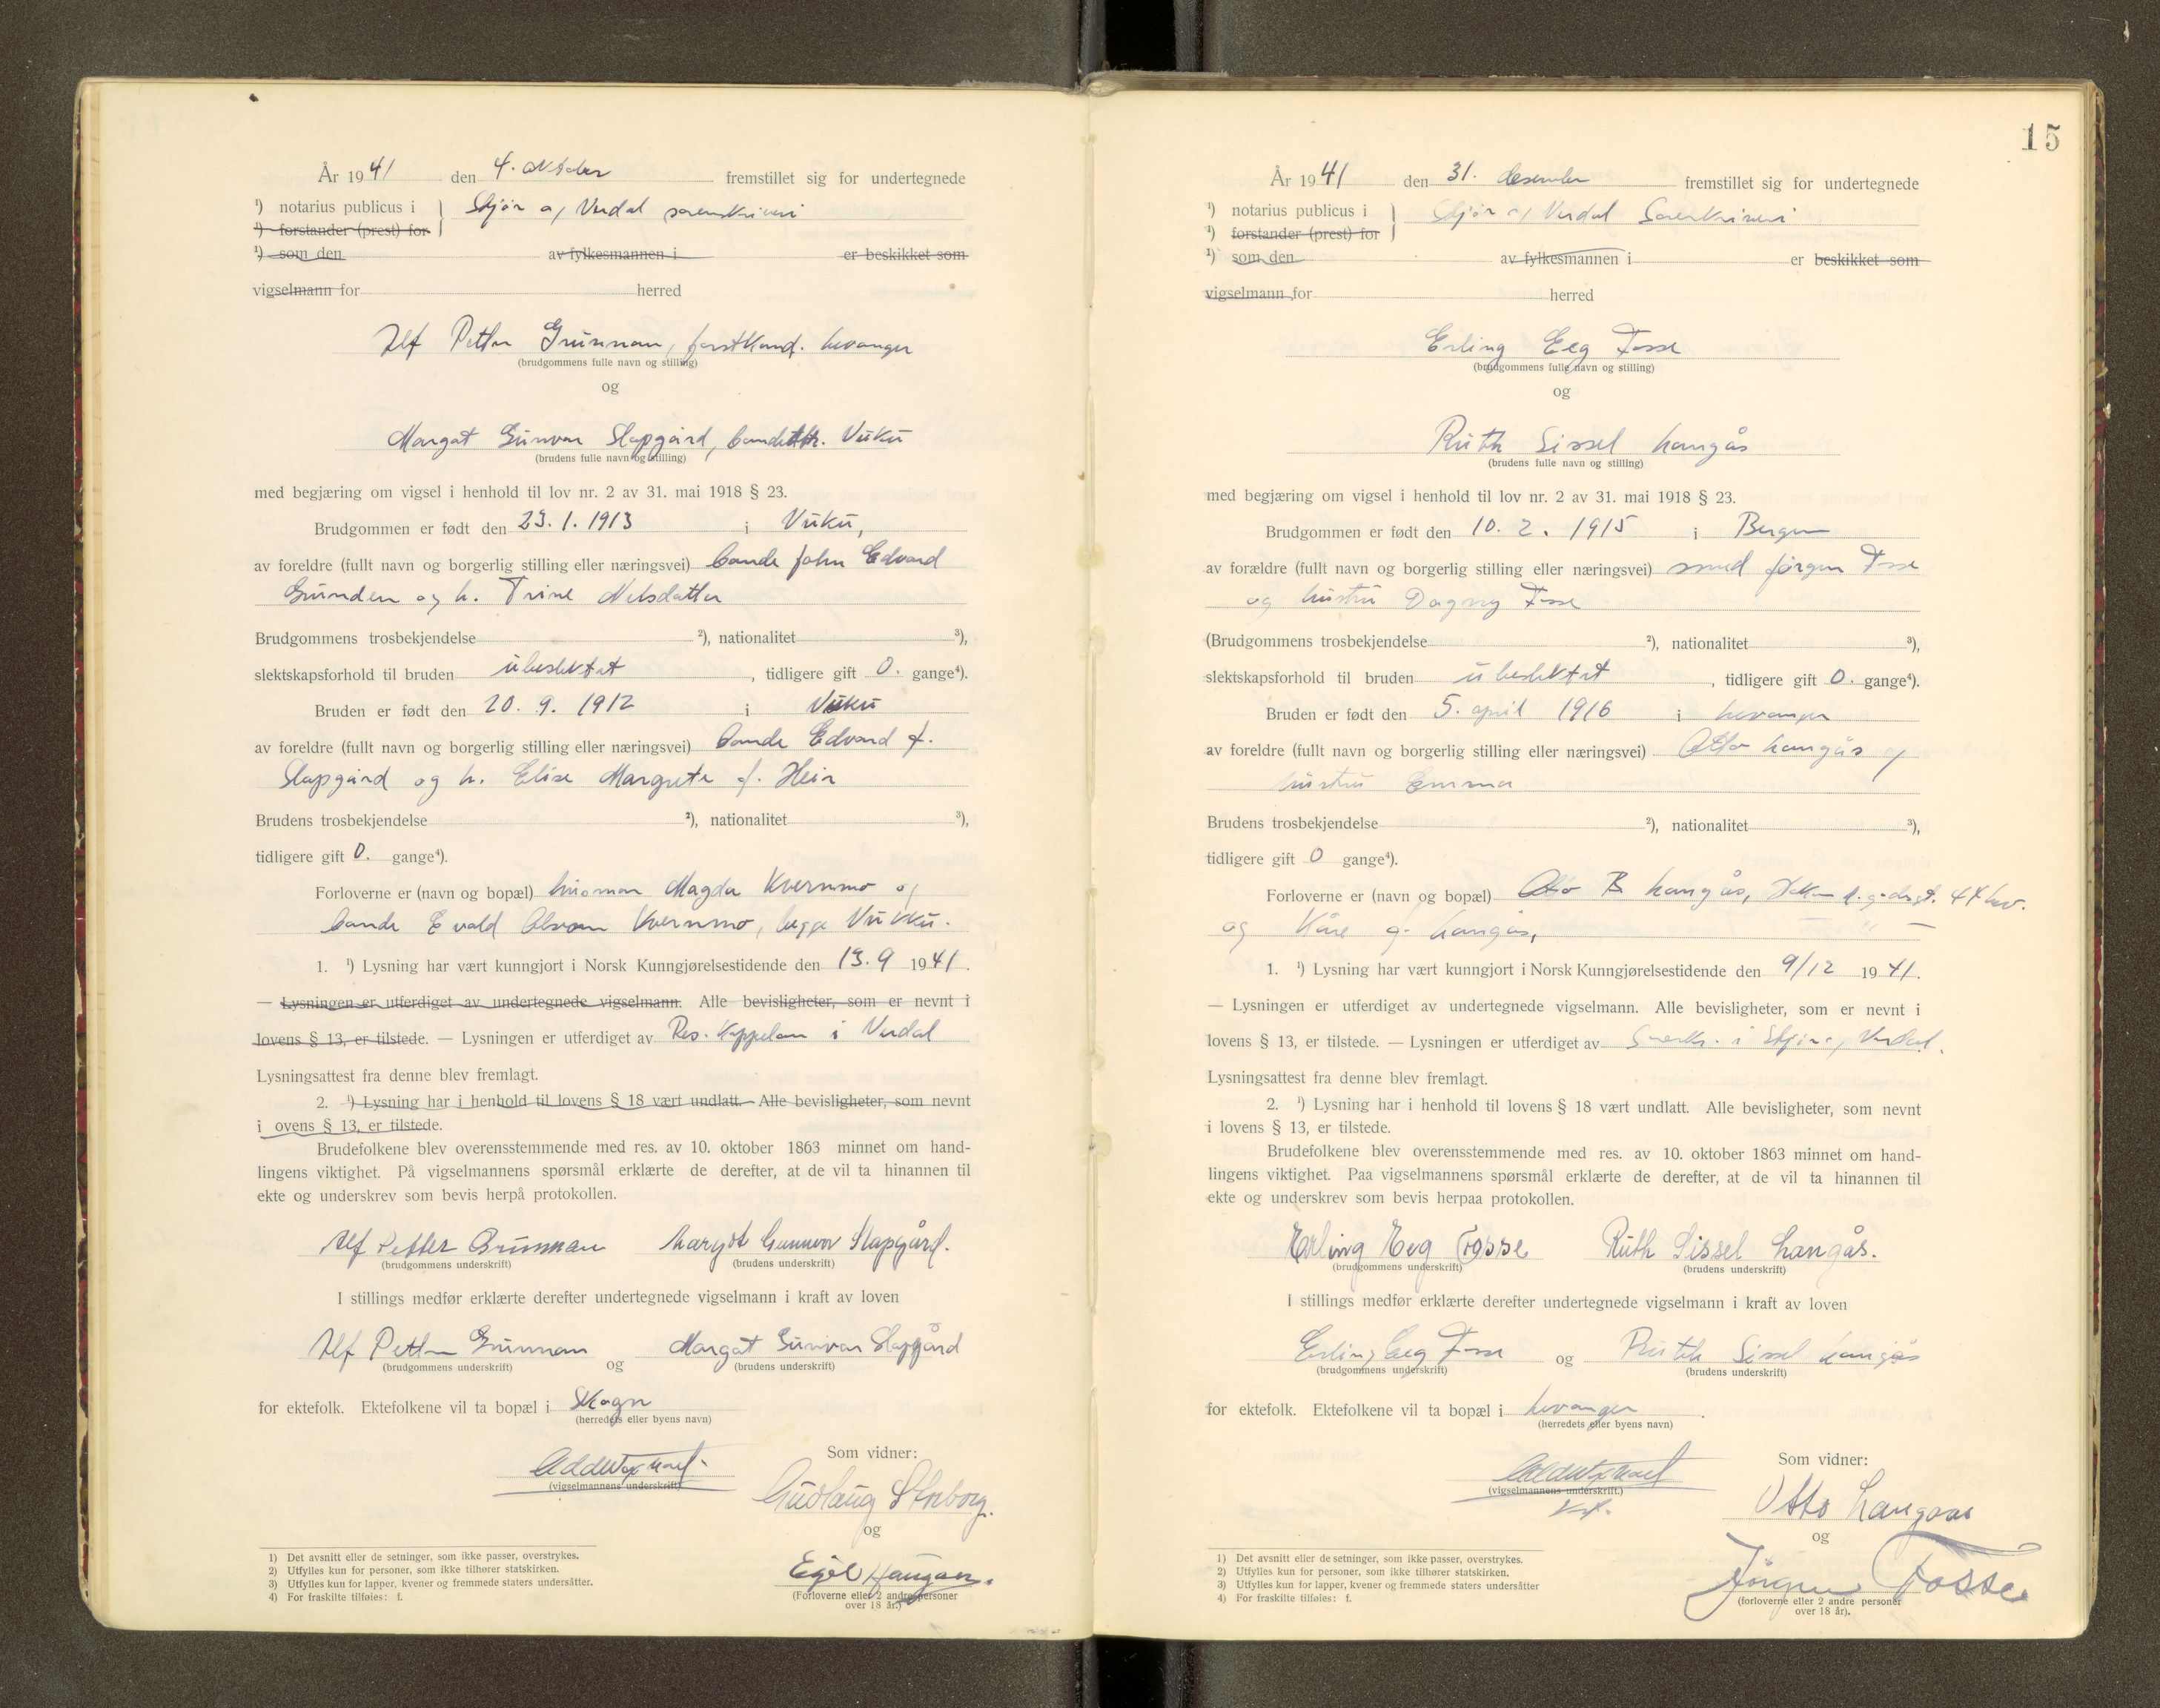 År 1941 den 4. oktober fremstillet sig for undertegnede
¹) notarius publicus i Stjør og Verdal sorenskriveri
¹) forstander (prest) for
¹) som den av fylkesmannen i er beskikket som
vigselmann for herred
Alf Petter Grunnan, forstkand. Levanger
(brudgommens fulle navn og stilling)
og
Margot Gunvor Slapgård, bondedtr. Vuku
(brudens fulle navn og stilling)
med begjæring om vigsel i henhold til lov nr. 2 av 31. mai 1918 § 23.
Brudgommen er født den 23. 1. 1913 i Vuku,
av foreldre (fullt navn og borgerlig stilling eller næringsvei) bonde John Edvard
og h. Trine
Brudgommens trosbekjendelse ²), nationalitet ³),
slektskapsforhold til bruden ubeslektet, tidligere gift 0. gange⁴).
Bruden er født den 20. 9. 1912 i Vuku
av foreldre (fullt navn og borgerlig stilling eller næringsvei) bonde Edvard J.
Slapgård og h. Elise Margrete f.
Brudens trosbekjendelse ²), nationalitet ³),
tidligere gift 0. gange⁴).
Forloverne er (navn og bopæl) Magda Kvernmo og
bonde Kvernmo, begge Vuku.
1. ¹) Lysning har vært kunngjort i Norsk Kunngjørelsestidende den 13. 9 1941.
— Lysningen er utferdiget av undertegnede vigselmann. Alle bevisligheter, som er nevnt i
lovens § 13, er tilstede. — Lysningen er utferdiget av Res. Kappelan i Verdal
Lysningsattest fra denne blev fremlagt.
2. ¹) Lysning har i henhold til lovens § 18 vært undlatt. Alle bevisligheter, som nevnt
i ovens § 13, er tilstede.
Brudefolkene blev overensstemmende med res. av 10. oktober 1863 minnet om hand-
lingens viktighet. På vigselmannens spørsmål erklærte de derefter, at de vil ta hinannen til
ekte og underskrev som bevis herpå protokollen.
Alf Petter Grunnan Margot Gunnvor Slapgård.
(brudgommens underskrift) (brudens underskrift)
I stillings medfør erklærte derefter undertegnede vigselmann i kraft av loven
Alf Petter Grunnan og Margot Gunvor Slapgård
(brudgommens underskrift) (brudens underskrift)
for ektefolk. Ektefolkene vil ta bopæl i Skogn
(herredets eller byens navn)
Som vidner:
(vigselmannens underskrift)
Gudlaug Storborg.
og
Egil Haugan.
(Forloverne eller 2 andre personer
over 18 år.)
1) Det avsnitt eller de setninger, som ikke passer, overstrykes.
2) Utfylles kun for personer, som ikke tilhører statskirken.
3) Utfylles kun for lapper, kvener og fremmede staters undersåtter.
4) For fraskilte tilføies: f.
15
År 1941 den 31. desember fremstillet sig for undertegnede
¹) notarius publicus i Stjør og Verdal Sorenskriveri
¹) forstander (prest) for
¹) som den av fylkesmannen i er beskikket som
vigselmann for herred
Erling Eeg Fosse
(brudgommens fulle navn og stilling)
og
Ruth Sissel Langås
(brudens fulle navn og stilling)
med begjæring om vigsel i henhold til lov nr. 2 av 31. mai 1918 § 23.
Brudgommen er født den 10. 2. 1915 i Bergen
av forældre (fullt navn og borgerlig stilling eller næringsvei) smed Jørgen Fosse
og hustru Dagny Fosse
(Brudgommens trosbekjendelse ²), nationalitet ³),
slektskapsforhold til bruden ubeslektet, tidligere gift 0. gange⁴).
Bruden er født den 5. april 1916 i Levanger
av foreldre (fullt navn og borgerlig stilling eller næringsvei) Otto Langås og
hustru Emma
Brudens trosbekjendelse ²), nationalitet ³),
tidligere gift 0 gange⁴).
Forloverne er (navn og bopæl) Otto B Langås,
og Kåre Langås,
1. ¹) Lysning har vært kunngjort i Norsk Kunngjørelsestidende den 9/12 1941.
— Lysningen er utferdiget av undertegnede vigselmann. Alle bevisligheter, som er nevnt i
lovens § 13, er tilstede. — Lysningen er utferdiget av Sorenskr. i Stjør og Verdal.
Lysningsattest fra denne blev fremlagt.
2. ¹) Lysning har i henhold til lovens § 18 vært undlatt. Alle bevisligheter, som nevnt
i lovens § 13, er tilstede.
Brudefolkene blev overensstemmende med res. av 10. oktober 1863 minnet om hand-
lingens viktighet. Paa vigselmannens spørsmål erklærte de derefter, at de vil ta hinannen til
ekte og underskrev som bevis herpaa protokollen.
Erling Eeg Fosse Ruth Sissel Langås.
(brudgommens underskrift) (brudens underskrift)
I stillings medfør erklærte derefter undertegnede vigselmann i kraft av loven
Erling Eeg Fosse og Ruth Sissel Langås
(brudgommens underskrift) (brudens underskrift)
for ektefolk. Ektefolkene vil ta bopæl i Levanger.
(herredets eller byens navn)
Som vidner:
(vigselmannens underskrift.)
Otto Langaas
og
Jörgen Fosse
(forloverne eller 2 andre personer
over 18 år).
1) Det avsnitt eller de setninger, som ikke passer, overstrykes.
2) Utfylles kun for personer, som ikke tilhører statskirken.
3) Utfylles kun for lapper, kvener og fremmede staters undersåtter
4) For fraskilte tilføies: f.